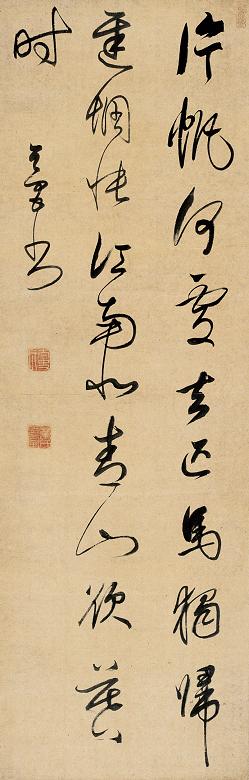 片帆何處去匹馬獨歸
遲惆悵江南北青山欲暮
時
其昌書